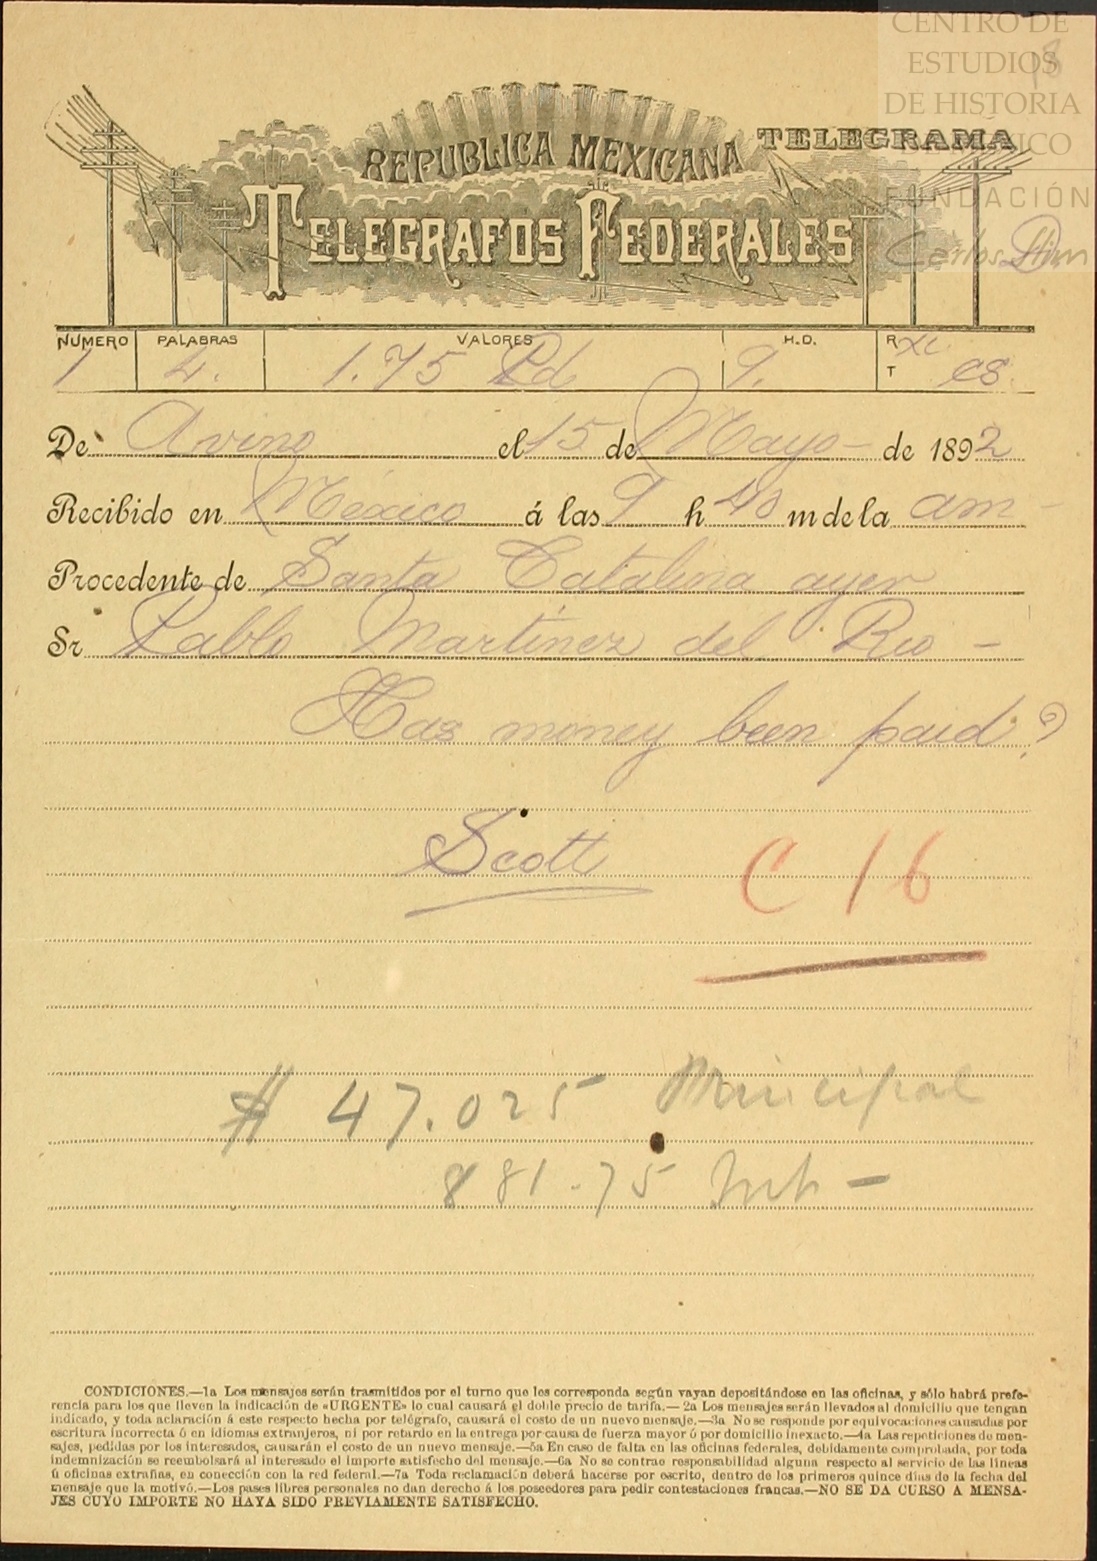 CENTRO DE
ESTUDIOS
DE HISTORIA
MÉXICO
FUNDACIÓN
Carlos Slim
REPUBLICA MEXICANA
TELEGRAMA
TELEGRAFOS FEDERALES
NUMERO PALABRAS VALORES H.D. R
1 4. 1.75 Pd 9. T
De Avino el 15 de Mayo de 1892
Recibido en Mexico á las 9 h 40 m de la am
Procedente de Santa Catalina ayer
Sr Pablo Martinez del Rio
Has money been paid?
Scott
C 16
$ 47.025 Municipal
881.75
CONDICIONES.—1a Los mensajes serán trasmitidos por el turno que les corresponda según vayan depositándose en las oficinas, y sólo habrá prefe-
rencia para los que lleven la indicación de «URGENTE» lo cual causará el doble precio de tarifa.—2a Los mensajes serán llevados al domicilio que tengan
indicado, y toda aclaración á este respecto hecha por telégrafo, causará el costo de un nuevo mensaje.—3a No se responde por equivocaciones causadas por
escritura incorrecta ó en idiomas extranjeros, ni por retardo en la entrega por causa de fuerza mayor ó por domicilio inexacto.—4a Las repeticiones de men-
sajes, pedidas por los interesados, causarán el costo de un nuevo mensaje.—5a En caso de falta en las oficinas federales, debidamente comprobada, por toda
indemnización se reembolsará al interesado el importe satisfecho del mensaje.—6a No se contrae responsabilidad alguna respecto al servicio de las líneas
ú oficinas extrañas, en conección con la red federal.—7a Toda reclamación deberá hacerse por escrito, dentro de los primeros quince días de la fecha del
mensaje que la motivó.—Los pases libres personales no dan derecho á los poseedores para pedir contestaciones francas.—NO SE DA CURSO A MENSA-
JES CUYO IMPORTE NO HAYA SIDO PREVIAMENTE SATISFECHO.